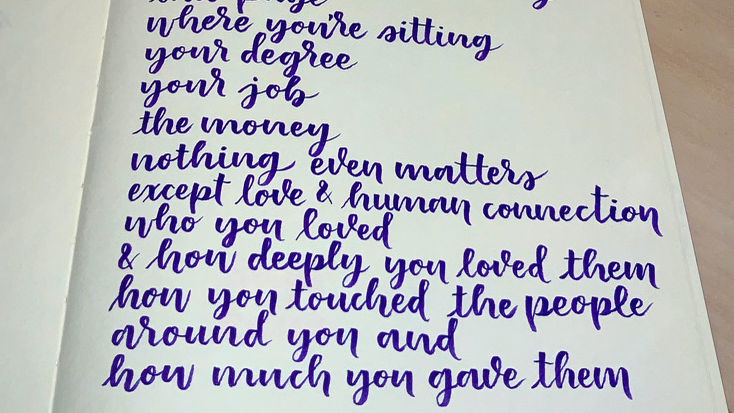 where you're sitting
your degree
your job
the money
nothing even matters
except love & human connection
who you loved
& how deeply you loved them
how you touched the people
around you and
how much you gave them